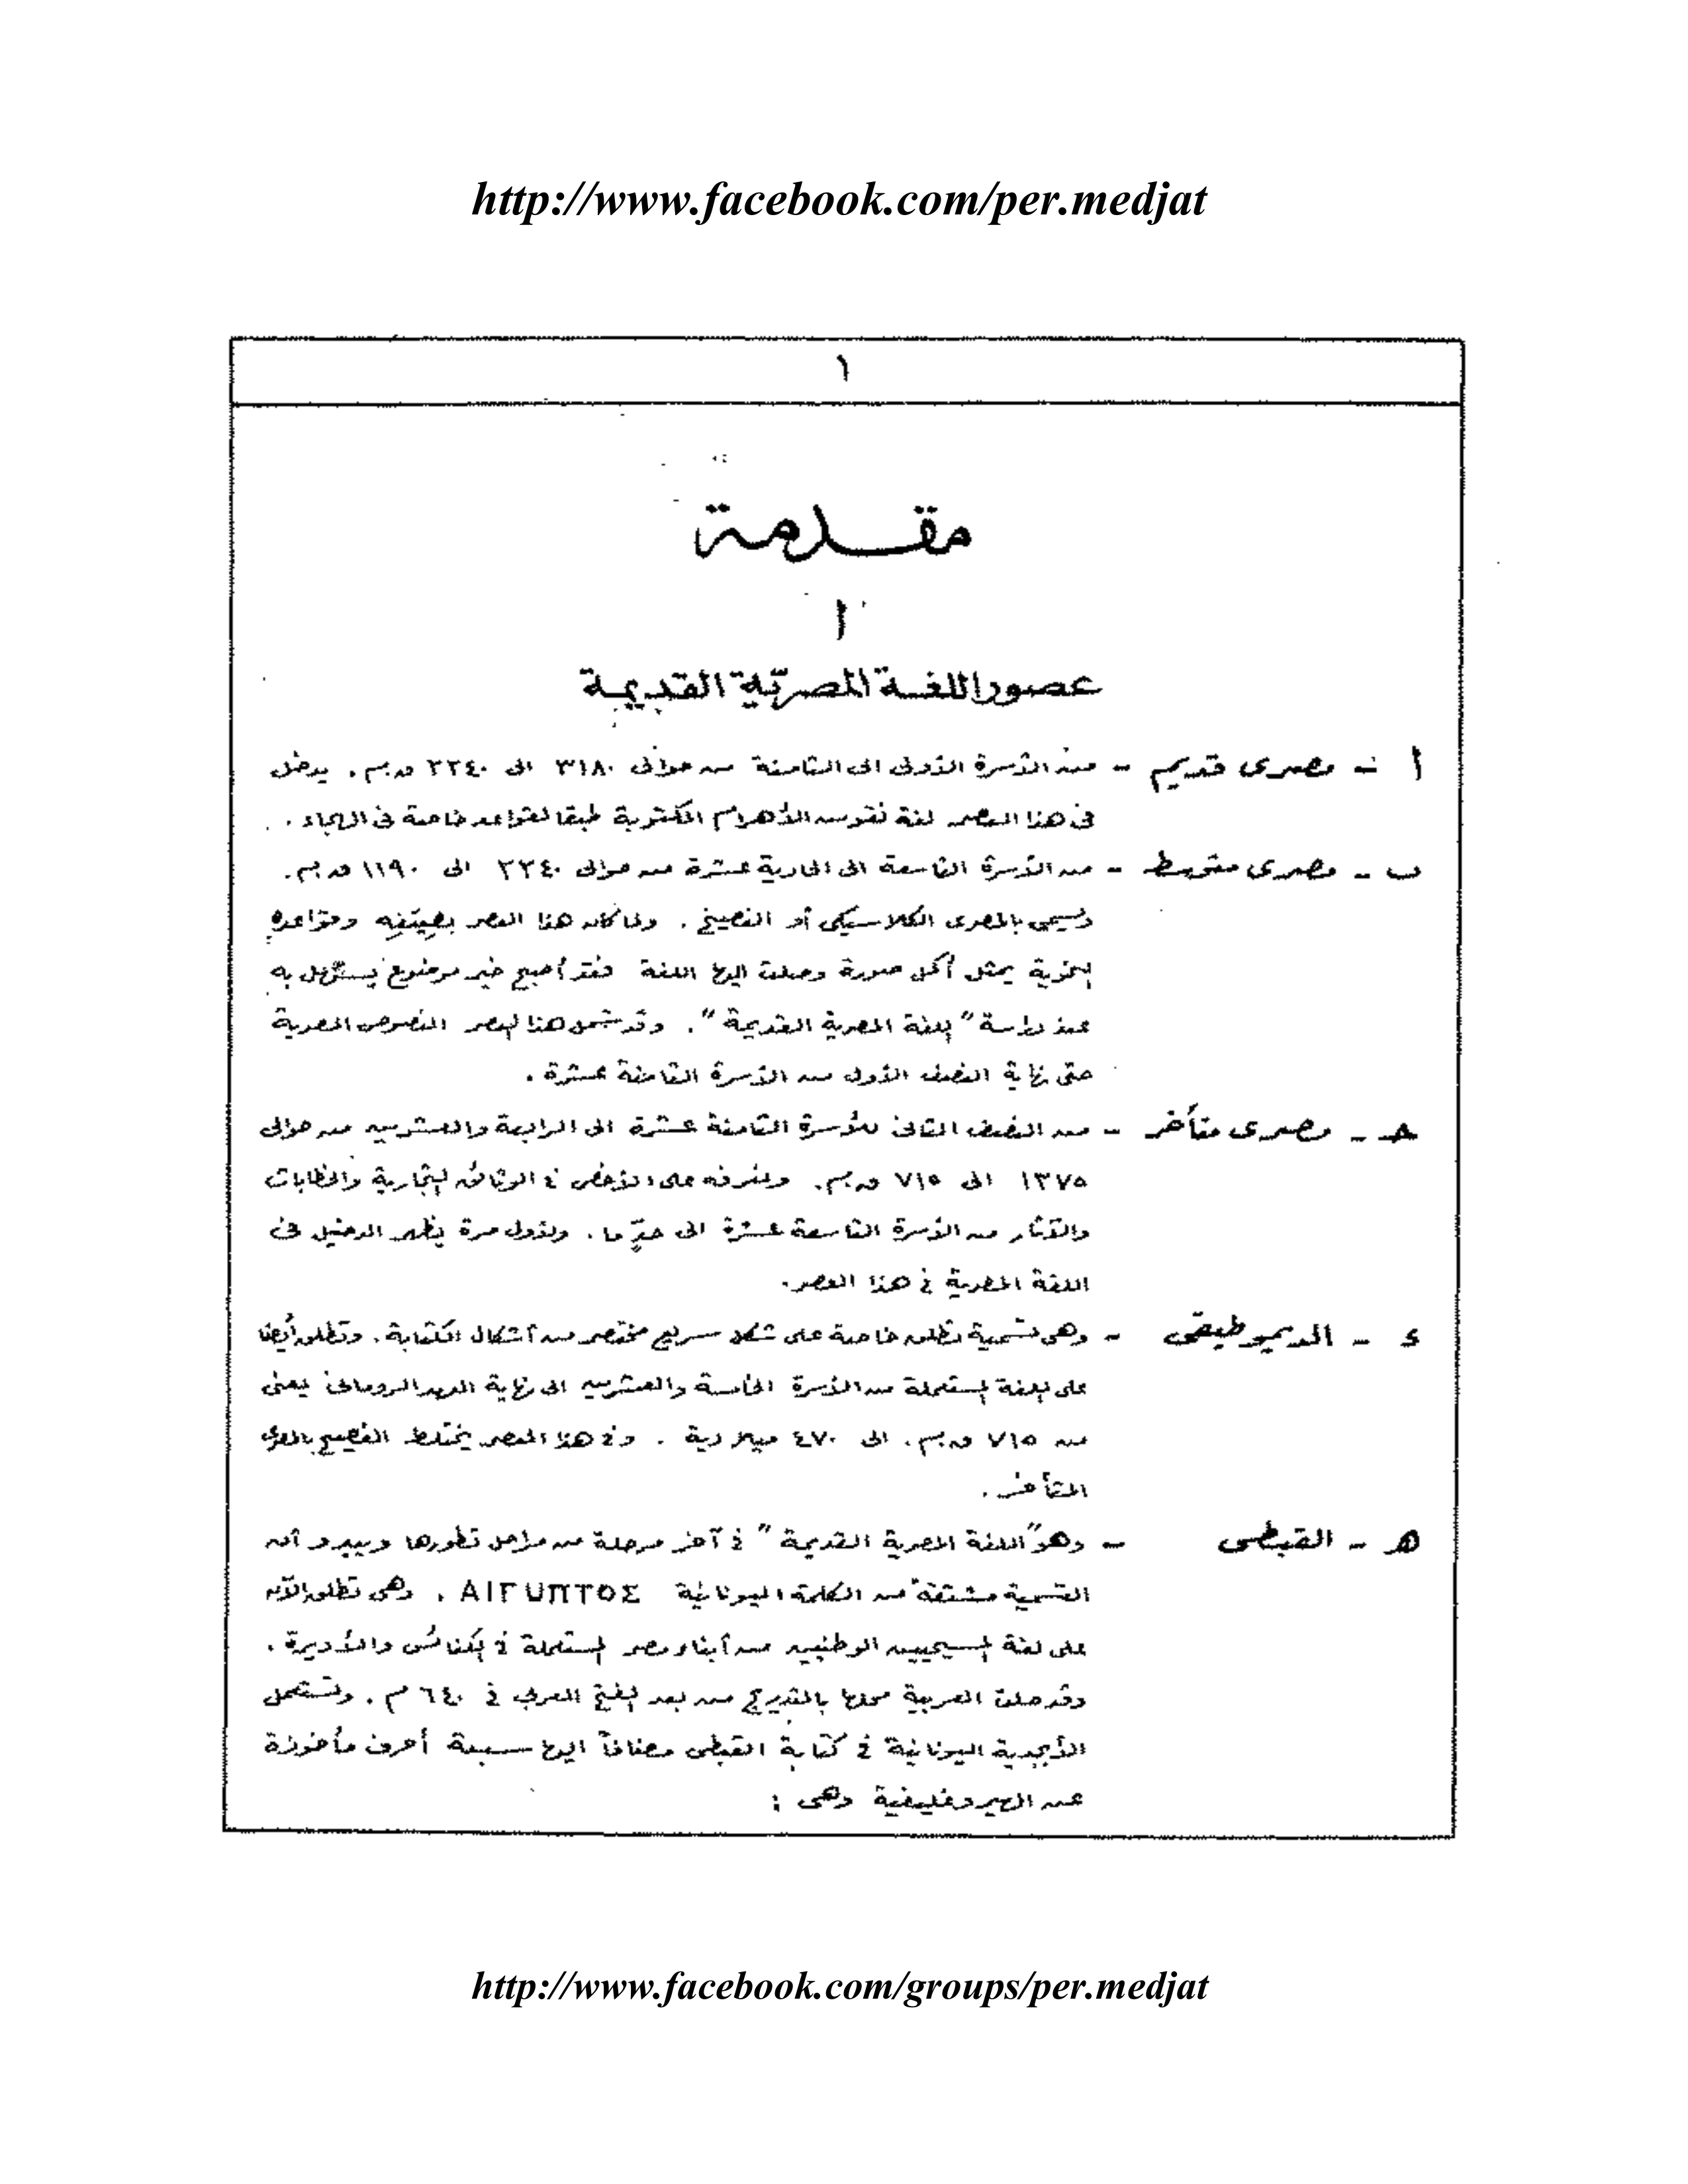 http://www.facebook.com/per.medjat
١
مقدمة
١
عصور اللغة المصريّة القديمة
أ - مصرى قديم - منذ الأسرة الأولى الى الثامنة من حوالى ٣١٨٠ الى ٢٢٤٠ ق.م. يدخل
فى هذا العصر لغة نقوش الأهرام المكتوبة طبقا لقواعد خاصة فى الهجاء .
ب - مصرى متوسط - من الأسرة التاسعة الى الحادية عشرة من حوالى ٢٢٤٠ الى ١١٩٠ ق.م.
ويسمى بالمصرى الكلاسيكى أو الفصيح . ولما كان هذا العصر بصيغه وقواعده
النحوية يمثل أكمل صورة وصلت اليها اللغة فقد أصبح خير موضوع يستهل به
عند دراسة "اللغة المصرية القديمة". وقد شمل هذا العصر النصوص المصرية
حتى نهاية النصف الأول من الأسرة الثامنة عشرة .
جـ - مصرى متأخر - من النصف الثانى للأسرة الثامنة عشرة الى الرابعة والعشرين من حوالى
١٣٧٥ الى ٧١٥ ق.م. ونعرفه على الأخص فى الوثائق التجارية والخطابات
والآثار من الأسرة التاسعة عشرة الى حدٍّ ما . ولأول مرة يظهر الدخيل فى
اللغة المصرية فى هذا العصر.
د - الديموطيقى - وهى تسمية تطلق خاصة على شكل سريع مختصر من أشكال الكتابة . وتطلق أيضا
على اللغة المستعملة من الأسرة الخامسة والعشرين الى نهاية العهد الرومانى يعنى
من ٧١٥ ق.م. الى ٤٧٠ ميلادية . وفى هذا العصر يختلط الفصيح بالمصرى
المتأخر .
هـ - القبطى - وهو "اللغة المصرية القديمة" فى آخر مرحلة من مراحل تطورها ويبدو أن
التسمية مشتقة من الكلمة اليونانية ΑΙΓUΠΤΟΣ . وهى تطلق الآن
على لغة المسيحيين الوطنيين من أبناء مصر المستعملة فى الكنائس والأديرة .
وقد حلت العربية محلها بالتدريج من بعد الفتح العربى فى ٦٤٠ م . وتستعمل
الأبجدية اليونانية فى كتابة القبطى مضافاً اليها سبعة أحرف مأخوذة
عن الهيروغليفية وهى :
http://www.facebook.com/groups/per.medjat